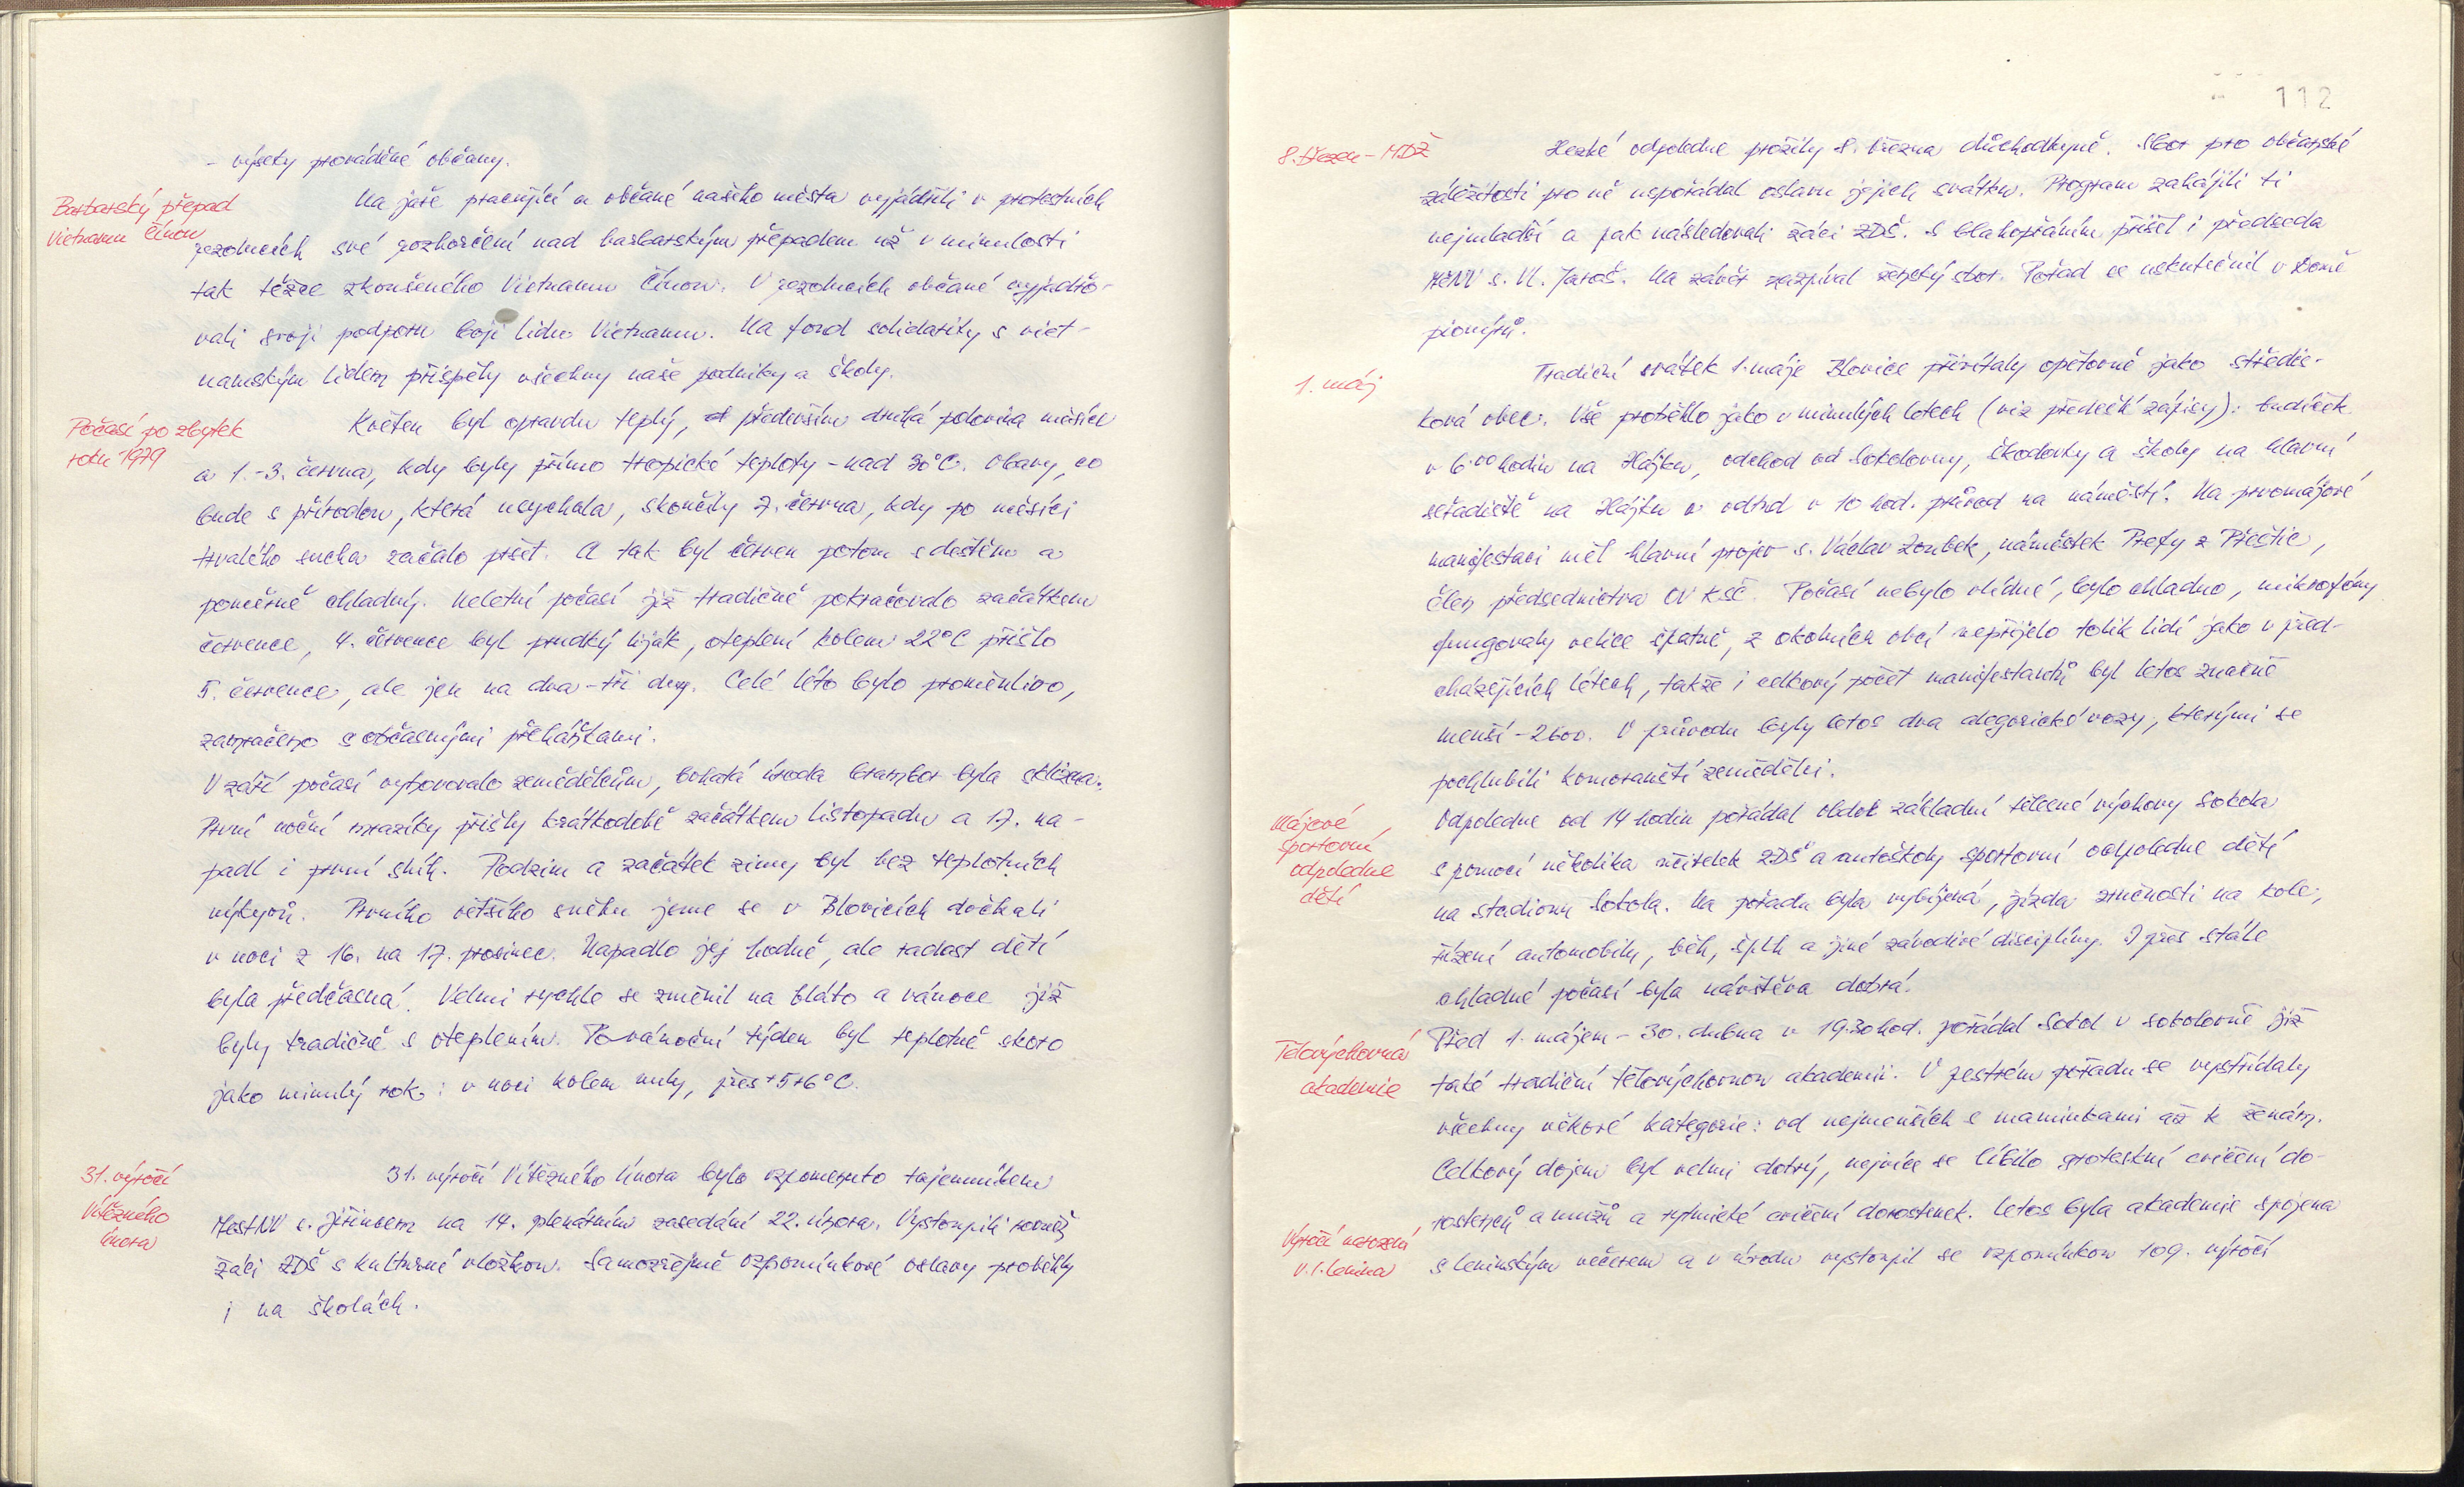 - výseky prováděné občany.
Barbarský přepad
Vietnamu Čínou
Na jaře pracující a občané našeho města vyjádřili v protestních
rezolucích své rozhořčení nad barbarským přepadem už v minulosti
tak těžce zkoušeného Vietnamu Čínou. V rezolucích občané vyjadřo-
vali svoji podporu boji lidu Vietnamu. Na fond solidarity s viet-
namským lidem přispěly všechny naše podniky a školy.
Počasí po zbytek
roku 1979
Květen byl opravdu teplý, především druhá polovina měsíce
a 1.-3. června, kdy byly přímo tropické teploty - nad 30°C. Obavy, co
bude s přírodou, která usychala, skončily 7. června, kdy po měsíci
trvalého sucha začalo pršet. A tak byl červen potom s deštěm a
poměrně chladný. Neletní počasí již tradičně pokračovalo začátkem
července, 4. července byl prudký liják, oteplení kolem 22°C přišlo
5. července, ale jen na dva - tři dny. Celé léto bylo proměnlivo,
zamračeno s občasnými přeháňkami.
V září počasí vyhovovalo zemědělcům, bohatá úroda brambor byla sklizena.
První noční mrazíky přišly krátkodobě začátkem listopadu a 17. na-
padl i první sníh. Podzim a začátek zimy byl bez teplotních
výkyvů. Prvního většího sněhu jsme se v Blovicích dočkali
v noci z 16. na 17. prosinec. Napadlo jej hodně, ale radost dětí
byla předčasná. Velmi rychle se změnil na bláto a vánoce již
byly tradičně s oteplením. Povánoční týden byl teplotně skoro
jako minulý rok: v noci kolem nuly, přes +5+6°C.
31. výročí
Vítězného
února
31. výročí Vítězného února bylo vzpomenuto tajemníkem
MěstNV s. Jiřincem na 14. plenárním zasedání 22. února. Vystoupili rovněž
žáci ZDŠ s kulturní vložkou. Samozřejmě vzpomínkové oslavy proběhly
i na školách.
112
8. březen - MDŽ
Hezké odpoledne prožily 8. března důchodkyně. Sbor pro občanské
záležitosti pro ně uspořádal oslavu jejich svátku. Program zahájili ti
nejmladší a pak následovali žáci ZDŠ. S blahopřáním přišel i předseda
MěNV s. Vl. Jaroš. Na závěr zazpíval ženský sbor. Pořad se uskutečnil v Domě
pionýrů.
1. máj
Tradiční svátek 1. máje Blovice přivítaly opětovně jako středis-
ková obec. Vše proběhlo jako v minulých letech (viz předešlé zápisy): budíček
v 6.00 hodin na Hájku, odchod od Sokolovny, škodovky a školy na hlavní
seřadiště na Hájku a odtud v 10 hod. průvod na náměstí. Na prvomájové
manifestaci měl hlavní projev s. Václav Zoubek, náměstek Prefy z Přeštic,
člen předsednictva OV KSČ. Počasí nebylo vlídné, bylo chladno, mikrofóny
fungovaly velice špatně, z okolních obcí nepřijelo tolik lidí jako v před-
cházejících létech, takže i celkový počet manifestantů byl letos značně
menší - 2600. V průvodu byly letos dva alegorické vozy, kterými se
pochlubili komoranští zemědělci.
Májové
sportovní
odpoledne
dětí
Odpoledne od 14 hodin pořádal oddíl základní tělesné výchovy Sokola
s pomocí několika učitelek ZDŠ a autoškoly sportovní odpoledne dětí
na stadionu Sokola. Na pořadu byla vybíjená, jízda zručnosti na kole,
řízení automobilu, běh, šplh a jiné závodivé disciplíny. I přes stále
chladné počasí byla návštěva dobrá.
Tělovýchovná
akademie
Před 1. májem - 30. dubna v 19.30 hod. pořádal Sokol v sokolovně již
také tradiční tělovýchovnou akademii. V pestrém pořadu se vystřídaly
všechny věkové kategorie: od nejmenších s maminkami až k ženám.
Celkový dojem byl velmi dobrý, nejvíce se líbilo groteskní cvičení do-
rostenců a mužů a rytmické cvičení dorostenek. Letos byla akademie spojena
Výročí narození
V. I. Lenina
s leninským večerem a v úvodu vystoupil se vzpomínkou 109. výročí